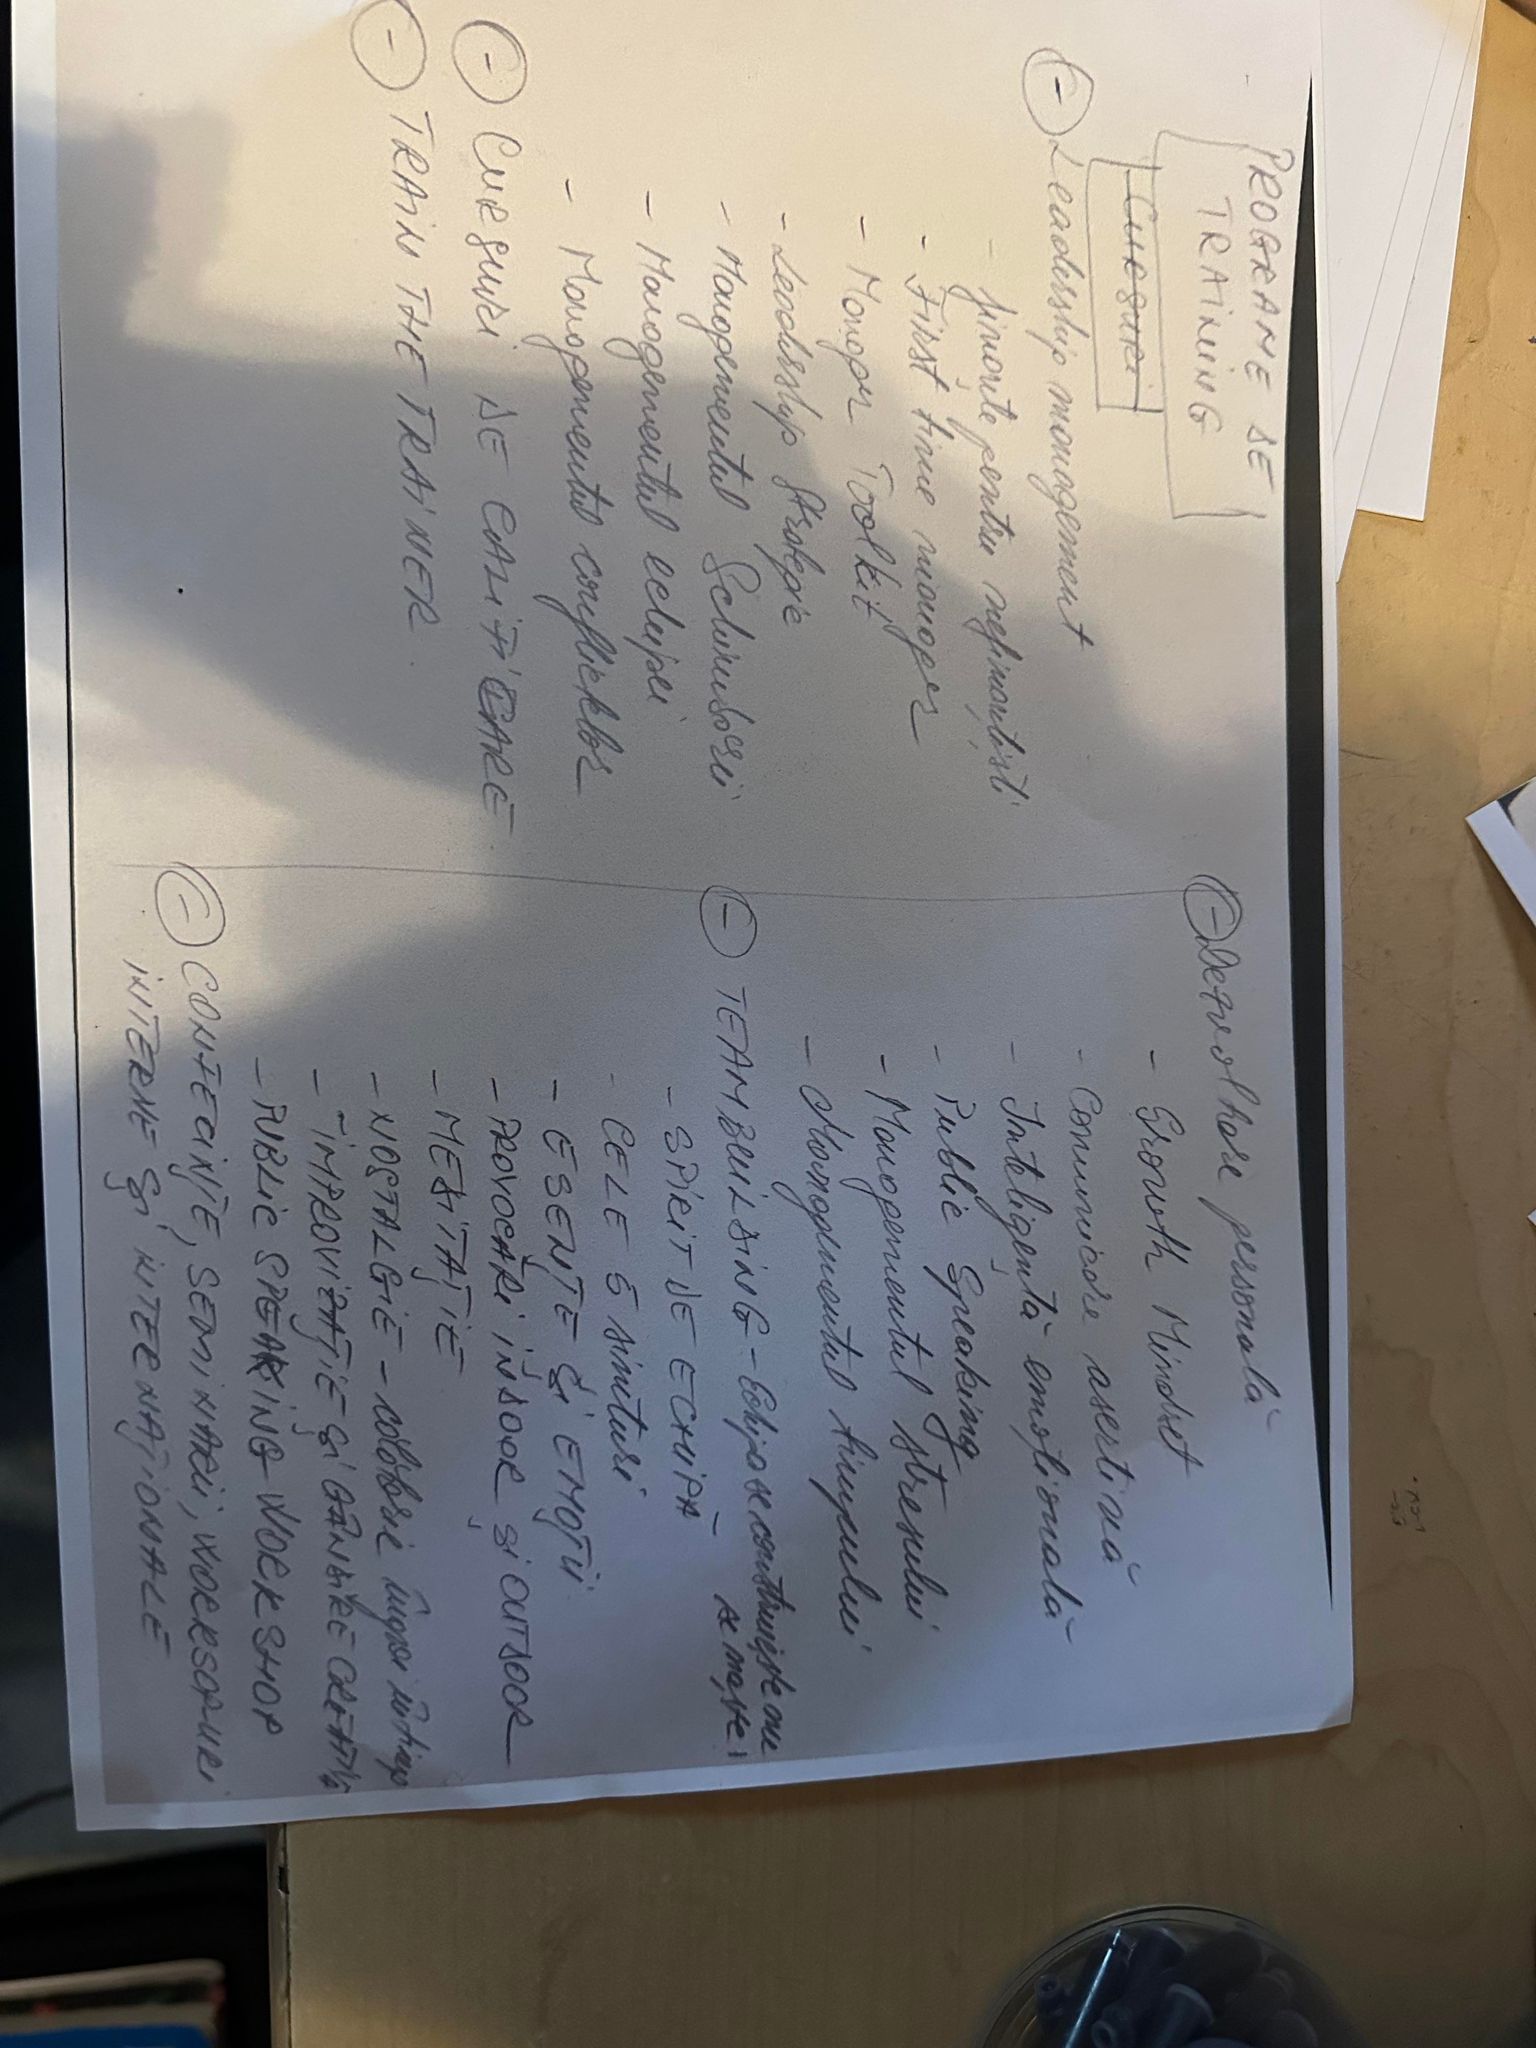 PROGRAME DE
TRAINING
CURSURI
- Leadership management
- finanțe pentru nefinanțiști
- First time manager
- Manager Toolkit
- Leadership Strategic
- Managementul Schimbării
- Managementul echipei
- Managementul conflictelor
- CURSURI DE CALIFICARE
- TRAIN THE TRAINER
- Dezvoltare personală
- Growth Mindset
- Comunicare asertivă
- Inteligență emoțională
- Public Speaking
- Managementul stresului
- Managementul timpului
- TEAMBUILDING - Echipa se construiește nu
se naște!
- SPIRIT DE ECHIPĂ
- CELE 5 simțuri
- ESENȚE și EMOȚII
- PROVOCĂRI INDOOR și OUTDOOR
- MEDITAȚIE
- NOSTALGIE - călătorie înapoi în timp
- IMPROVIZAȚIE și GÂNDIRE CREATIVĂ
- PUBLIC SPEAKING WORKSHOP
- CONFECINȚE, SEMINARII, WORKSOP-URI
INTERNE și INTERNAȚIONALE